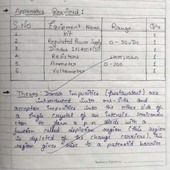 Apparatus Required :
S.No Equipment Name Range Qty
1. Kit 1
2. Regulated Power Supply 0-30VDC 1
3. Diode 1
4. Resistors
5. Ammeter 0-200 1
6. Voltmeter 1
Theory: Donor impurities (pentavalent) are
introduced into one-side and
acceptor impurities into the other side of
a single crystal of an intrinsic semicondu-
to form a p-n diode with a
junction called depletion region (this region
is depleted off the charge carriers). This
region gives rise to a potential barrier